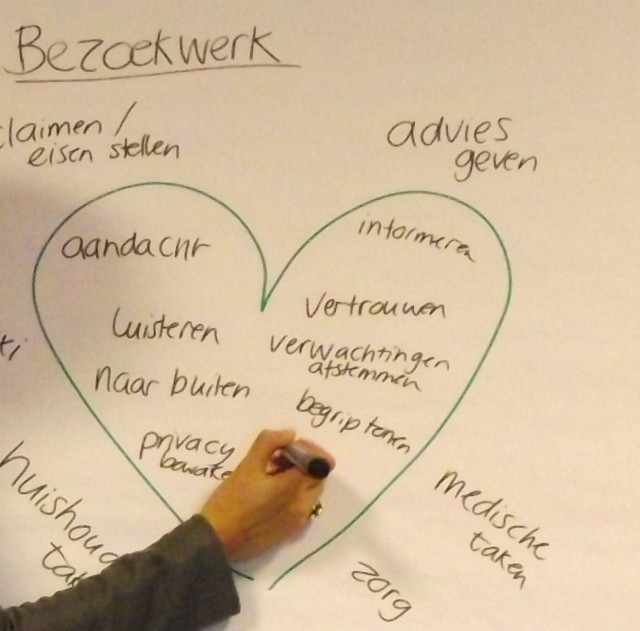 Bezoekwerk
claimen /
eisen stellen
advies
geven
aandacht
informeren
luisteren
vertrouwen
verwachtingen
afstemmen
naar buiten
begrip tonen
privacy
medische
taken
zorg